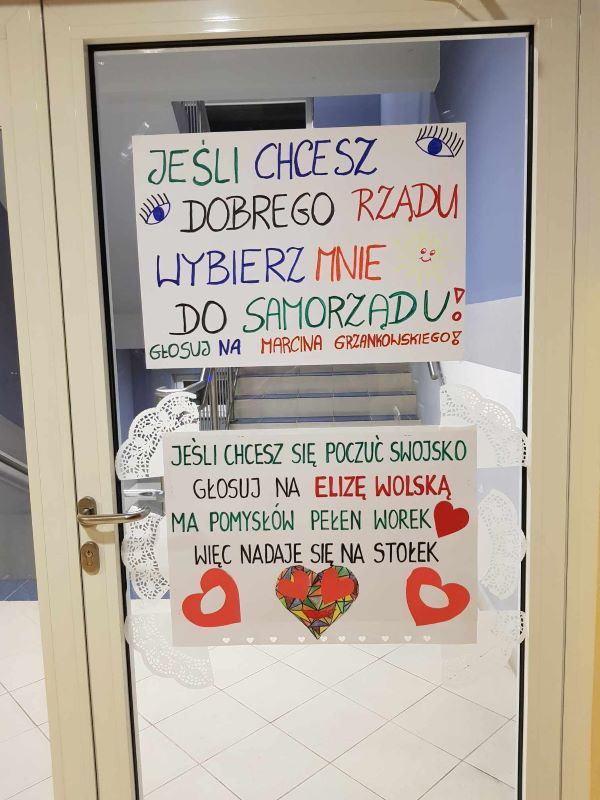 JEŚLI CHCESZ
DOBREGO RZĄDU
WYBIERZ MNIE
DO SAMORZĄDU!
GŁOSUJ NA MARCINA GRZANKOWSKIEGO!
JEŚLI CHCESZ SIĘ POCZUĆ SWOJSKO
GŁOSUJ NA ELIZĘ WOLSKĄ
MA POMYSŁÓW PEŁEN WOREK
WIĘC NADAJE SIĘ NA STOŁEK